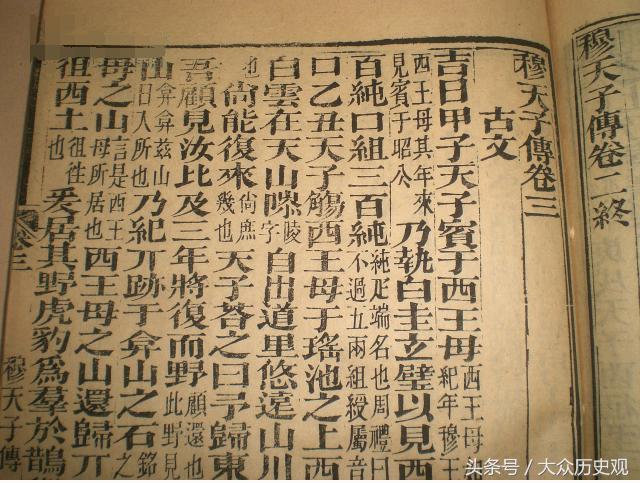 穆天子傳卷二終
穆天子傳卷三
古文
吉日甲子天子賓于西王母西王母紀年穆王
西王母其年來見賓于昭公乃執白圭玄璧以見西
百純口組三百純純疋端名也周禮曰不過五兩組綬屬音
口乙丑天子觴西王母于瑤池之上西
白雲在天山陵字自出道里悠遠山川
也尚能復來尚庶幾也天子答之曰予歸東
吾顧見汝比及三年將復而野顧還也此野見
山弇弇茲山日入所也乃紀丌跡于弇山之石銘
母之山言是西王母所居也西王母之山還歸丌
徂西土徂往也爰居其野虎豹爲羣於鵲
卷三
穆天子傳
头条号／大众历史观